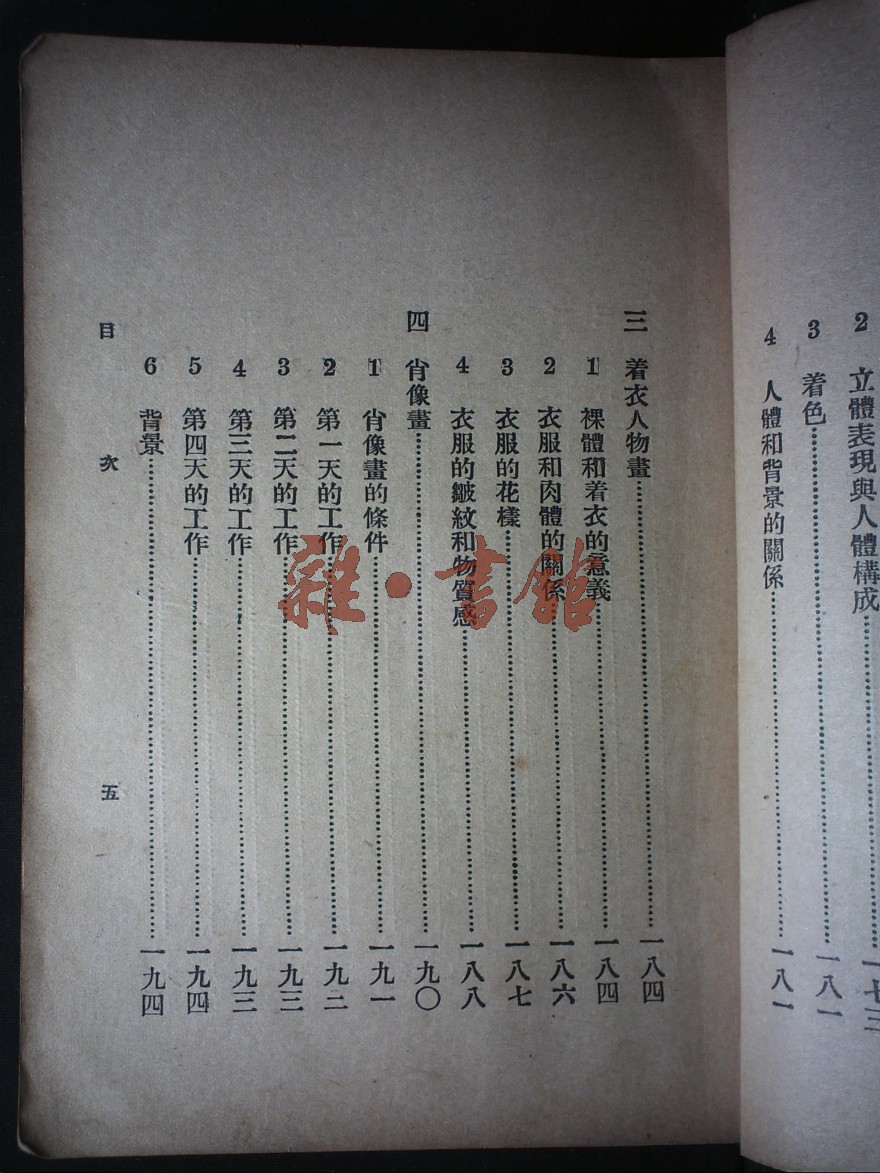 2 立體表現與人體構成……一七三
3 着色……一八一
4 人體和背景的關係……一八一
三 着衣人物畫……一八四
1 裸體和着衣的意義……一八四
2 衣服和肉體的關係……一八六
3 衣服的花樣……一八七
4 衣服的皺紋和物質感……一八八
四 肖像畫……一九〇
1 肖像畫的條件……一九一
2 第一天的工作……一九二
3 第二天的工作……一九三
4 第三天的工作……一九三
5 第四天的工作……一九四
6 背景……一九四
目次 五
雜·書館